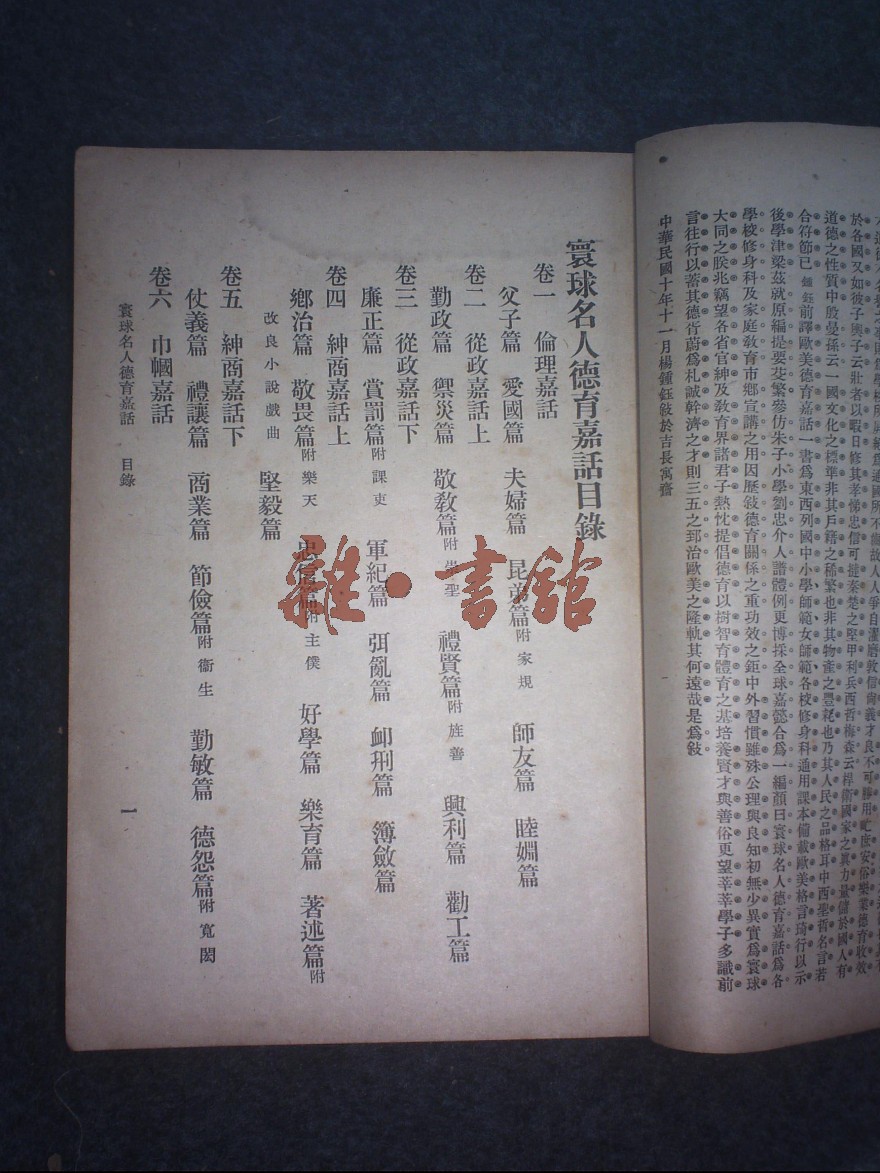 於各國又如彼子輿子云壯者以暇日修其孝悌忠信可撻秦楚之堅甲利兵西哲梅森云桿衛國家之眞力量儲於國人有
道德之性質中殷曼孫云一國文化之標準非其戶籍之稀繁也非其物產之豐耗也乃其人民之品格耳中西聖哲名言若
合符節已鍾鈺前譯歐美德育嘉話一書爲東西列國中小學師範女師範各校修身科通用課本備載歐美格言琦行以示
後學津梁茲就原編提要芟繁參仿朱子小學劉忠介人譜體例更博採全球嘉懿合爲一編顏曰寰球名人德育嘉話爲各
學校修身科及家庭敎育市鄉宣講之用因歷敍德育關係之重功效之鉅中外習慣雖殊公理與良知初無少異實爲寰球
大同之朕兆竊望各省官紳及敎育界諸君子熱忱提倡德育以樹智育體育之基培養賢才興善俗更望莘莘學子多識前
言往行以蓄其德胥蔚爲札誠幹濟之才則三五之郅治歐美之隆軌其何遠哉是爲敍
中華民國十年十一月楊鍾鈺敍於吉長寓齋
寰球名人德育嘉話目錄
卷一 倫理嘉話
父子篇 愛國篇 夫婦篇 昆弟篇附家規 師友篇 睦婣篇
卷二 從政嘉話上
勤政篇 禦災篇 敬敎篇附崇聖 禮賢篇附旌善 興利篇 勸工篇
卷三 從政嘉話下
廉正篇 賞罰篇附課吏 軍紀篇 弭亂篇 卹刑篇 簿斂篇
卷四 紳商嘉話上
鄉治篇 敬畏篇附樂天 忠信篇附主僕 好學篇 樂育篇 著述篇附
改良小說戲曲 堅毅篇
卷五 紳商嘉話下
仗義篇 禮讓篇 商業篇 節儉篇附衞生 勤敏篇 德怨篇附寬閎
卷六 巾幗嘉話
寰球名人德育嘉話 目錄
一
雜·書館